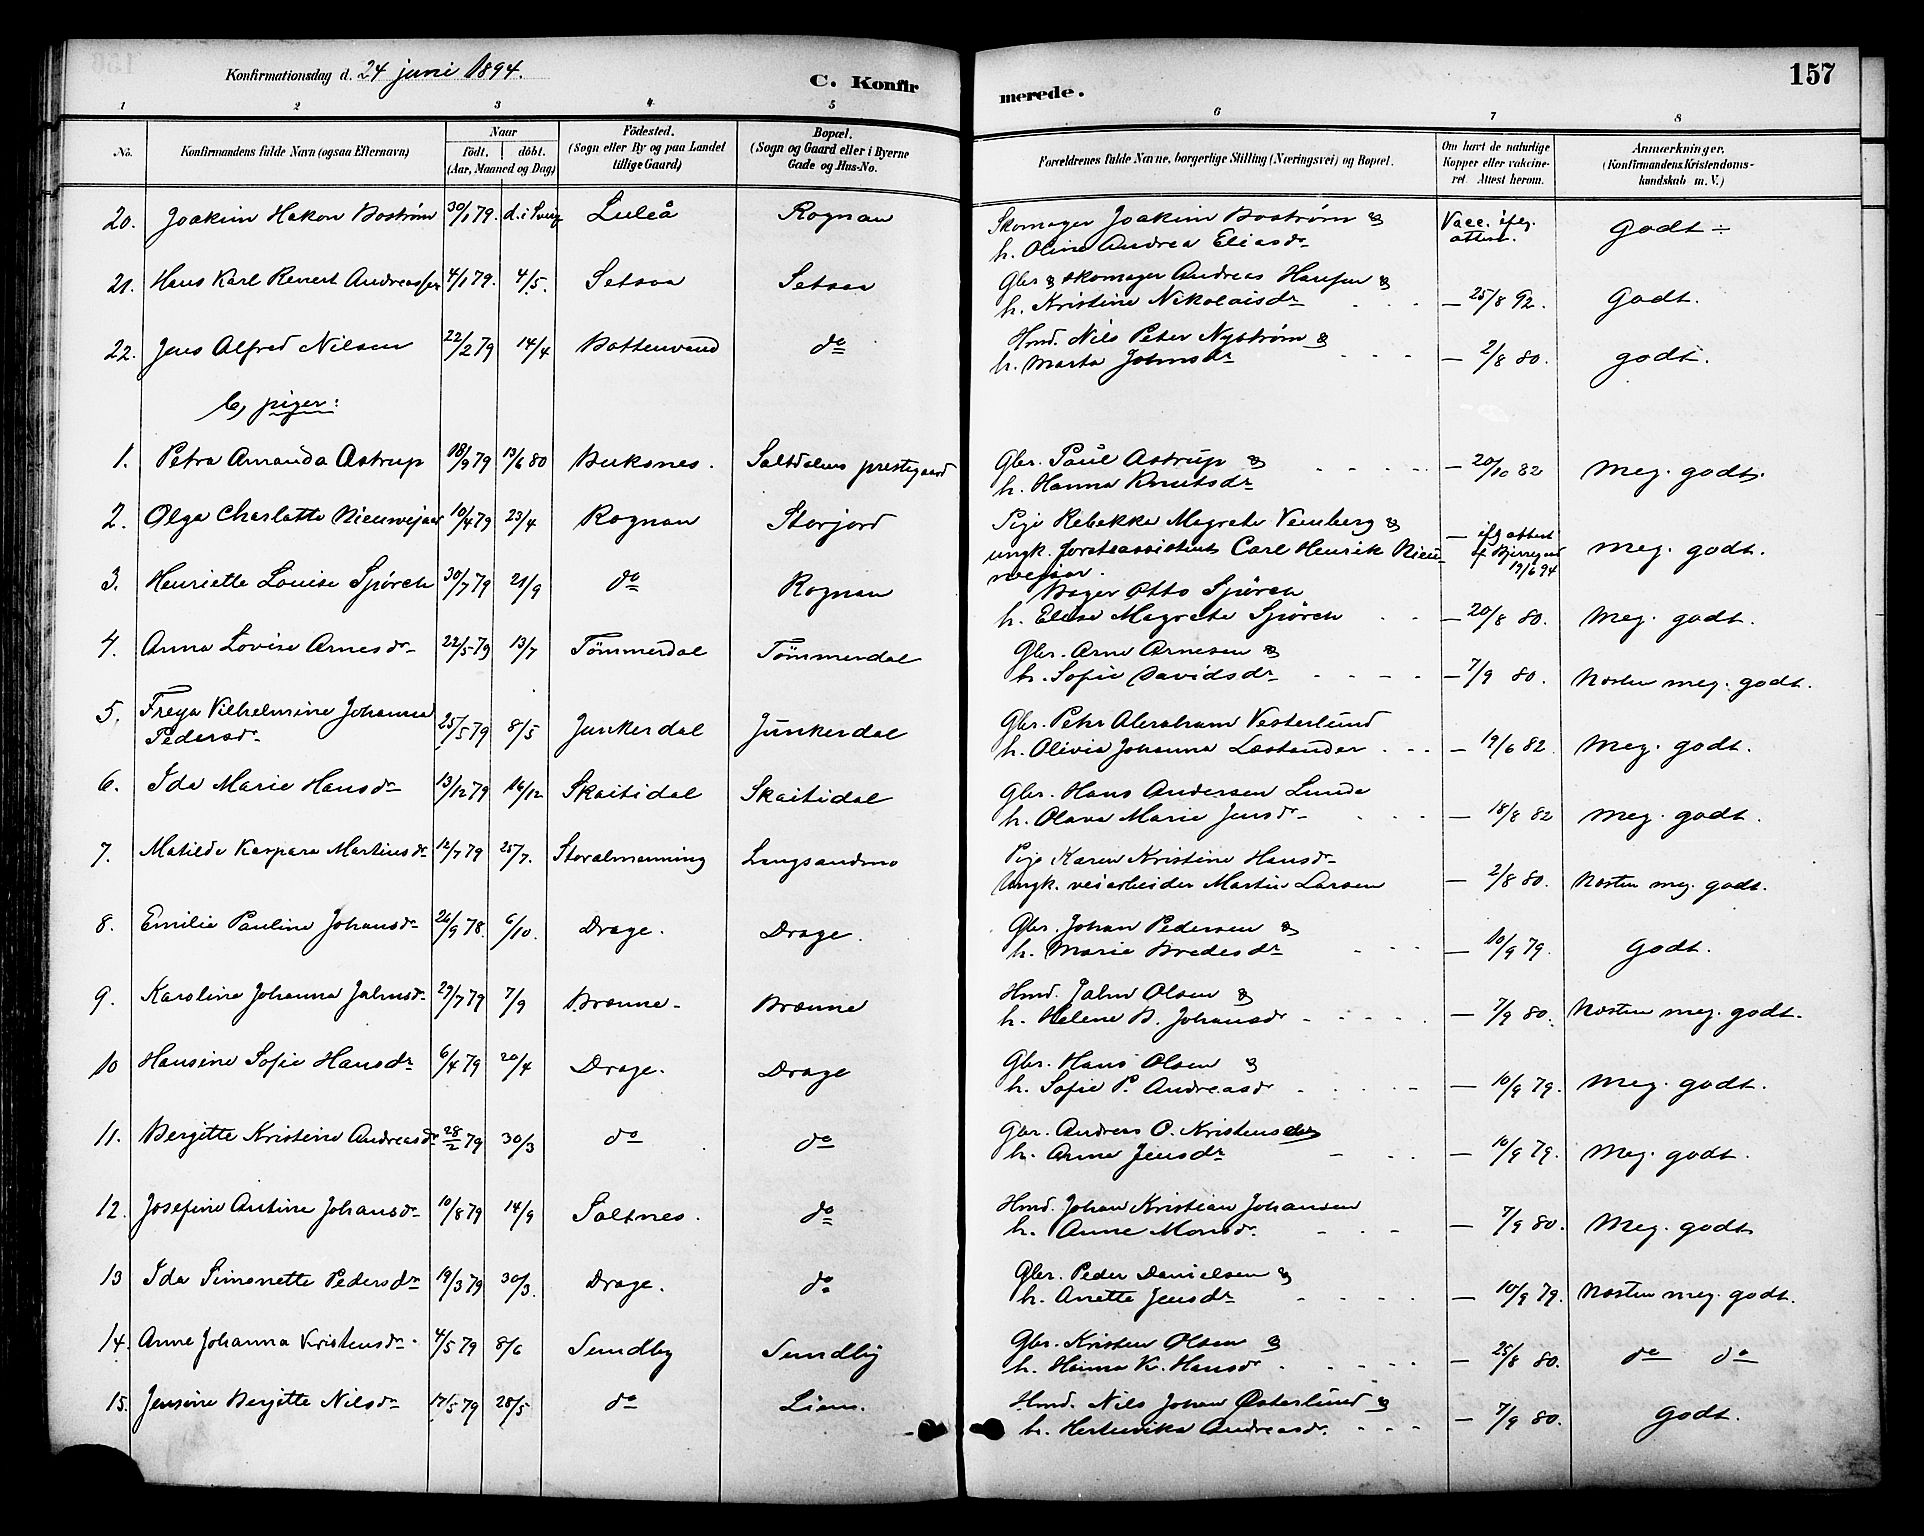 Konfirmationsdag d. 24 juni 1894.
C. Konfirmerede.
157
1 2 3 4 5 6 7 8
No. Konfirmandens fulde Navn (ogsaa Efternavn) Naar født, døbt. (Aar, Maaned og Dag) Fødested. (Sogn eller By og paa Landet tillige Gaard) Bopæl. (Sogn og Gaard eller i Byerne Gade og Hus-No. Forældrenes fulde Navne, borgerlige Stilling (Næringsvei) og Bopæl. Om havt de naturlige Kopper eller vakcineret. Attest herom. Anmærkninger. (Konfirmandens Kristendomskundskab m. V.)
20. Joakim Hakon Boström 30/1 79. d. i Sverig Luleå Rognan Skomager Joakim Boström & Vacc. iflg. attest. Godt ÷
h. Oline Andrea Eliasdr
21. Hans Karl Renert Andreassen 4/1 79. 4/5. Setsaa Setsaa Gbr & skomager Andreas Hansen & — 25/8 92. Godt.
h. Kristine Nikolaisdr
22. Jens Alfred Nilsen 22/2 79 14/4 Bottenvand do Hmd. Nils Peter Nyström & — 2/8 80. godt.
h. Marta Johnsdr
b, piger:
1. Petra Amanda Astrup 18/9 79 13/6 80 Buksnes. Saltdalens prestegaard Gbr. Paul Astrup & — 20/10 82 Meg. godt.
h. Hanna Knutsdr
2. Olga Charlotte Nieuwejaar 10/4 79 23/4 Rognan Storjord Pige Rebekka Magrete Venberg & — iflg attest 19/6 94 Meg. godt.
ungk. forstassistent Carl Henrik Nieuwejaar.
3. Henriette Louise Sjörch 30/7 79 21/9 do Rognan Bager Otto Sjörch
h. Elise Magrete Sjörch — 20/8 80. Meg. godt.
4. Anna Lovise Arnesdr 22/5 79 13/7 Tömmerdal Tömmerdal Gbr. Arne Arnesen &
h. Sofie Davidsdr — 7/9 80. Næsten meg. godt.
5. Freya Vilhelmine Johanna Pedersdr 25/5 79 8/5 Junkerdal Junkerdal Gbr. Pehr Abraham Vesterlund
h. Olivia Johanna Læstander — 19/6 82. Meg. godt.
6. Ida Marie Hansdr 13/12 79 16/12 Skaitidal Skaitidal Gbr. Hans Andersen Lunde
h. Olava Marie Jensdr — 18/8 82 Meg. godt.
7. Matilde Kaspara Martinsdr 12/7 79 25/7. Storalmenning Langsandmo Pige Karen Kristine Hansdr
Ungk. veiarbeider Martin Larsen — 2/8 80. Næsten meg. godt.
8. Emilie Pauline Johansdr 26/9 78. 6/10. Drage. Drage. Gbr. Johan Pedersen &
h. Marie Bredesdr — 10/9 79. Godt.
9. Karoline Johanna Jahnsdr 29/7 79 7/9 Brænne Brænne Hmd. Jahn Olsen &
h. Helene B. Johansdr — 7/9 80. Næsten meg. godt.
10 Hansine Sofie Hansdr 6/4 79 20/4 Drage. Drage Gbr. Hans Olsen &
h. Sofie P. Andreasdr — 10/9 79. Meg. godt.
11. Bergitte Kristine Andreasdr 28/2 79 30/3 do do Gbr. Andreas O. Kristensen
h. Anne Jensdr — 10/9 79. Meg. godt.
12. Josefine Antine Johansdr 10/8 79 14/9 Saltnes. do Hmd. Johan Kristian Johansen
h. Anne Monsdr. — 7/9 80. Meg. godt
13 Ida Simonette Pedersdr 19/3 79 30/3. Drage. do Gbr. Peder Danielsen &
h. Anette Jensdr — 10/9 79. Næsten meg. godt.
14. Anne Johanna Kristensdr 4/5 79 8/6 Sundby Sundby Gbr. Kristen Olsen &
h. Hanna K. Hansdr — 25/8 80. do do
15. Jensine Bergitte Nilsdr 17/5 79 28/5 do Liens. Hmd. Nils Johan Österlund &
h. Hedvika Andreasdr. — 7/9 80. Godt.